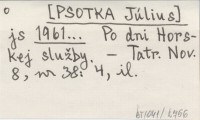 o [PSOTKA Július]
js 1961... Po dni Hors-
kej služby. – Tatr. Nov.
8, nr 38: 4, il.